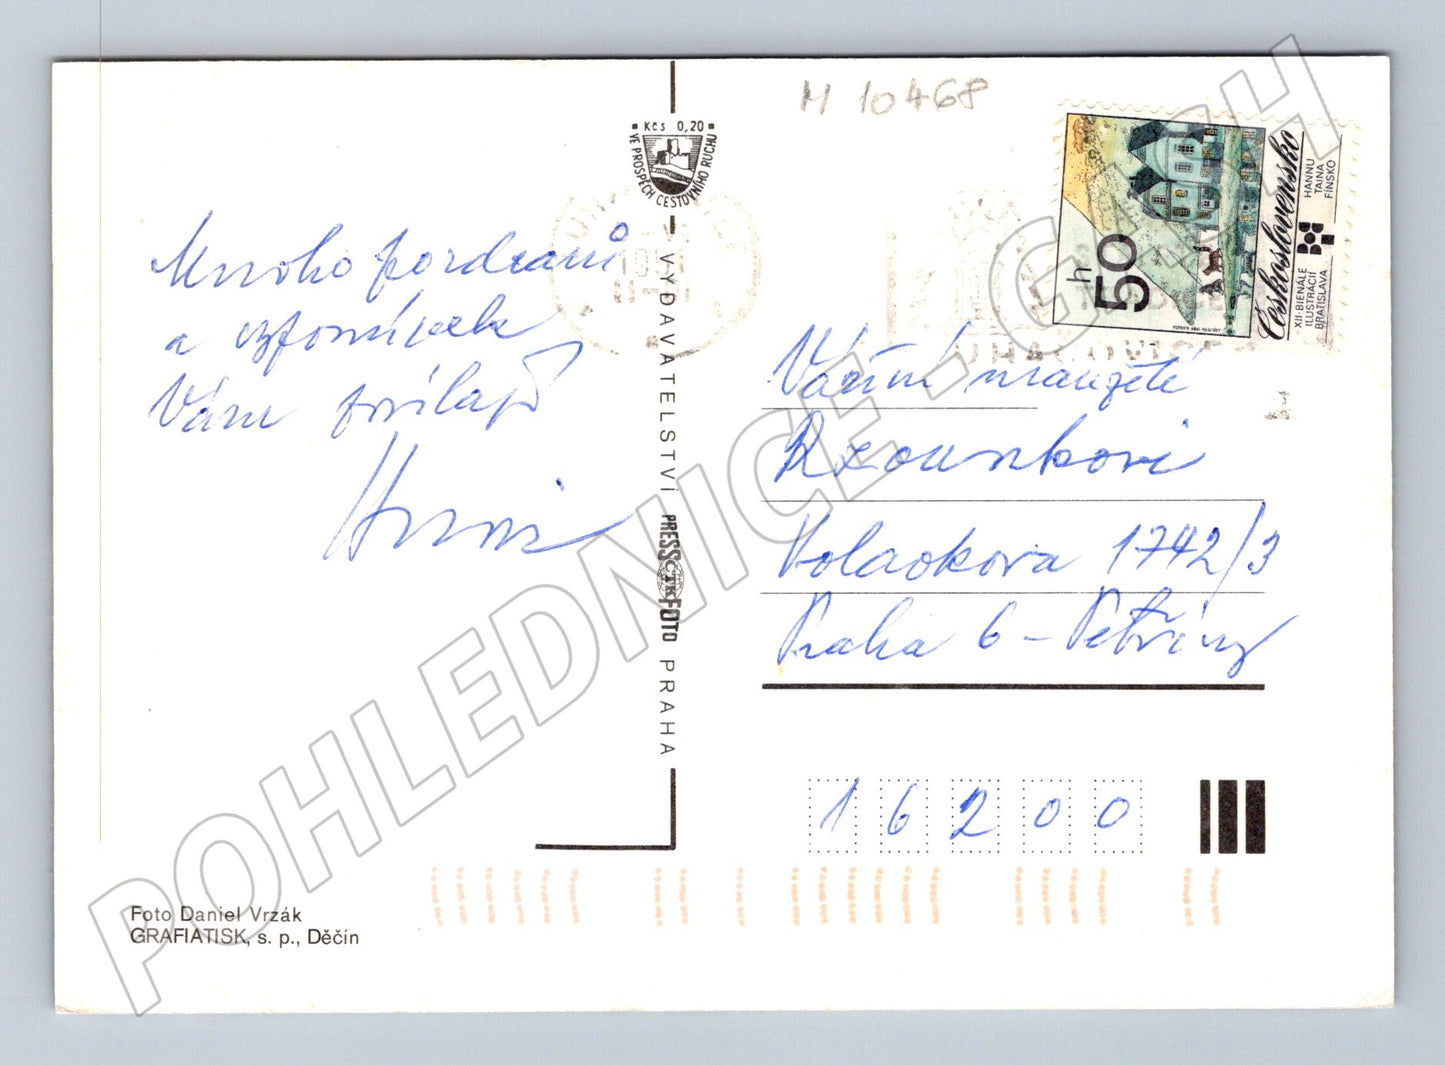 M 10468
Kčs 0,20
VE PROSPĚCH CESTOVNÍHO RUCHU
Mnoho pozdravů
a vzpomínek
Vám posílají
VYDAVATELSTVÍ PRESSFOTO PRAHA
ČTK
Československo
50 h
XII. BIENÁLE
ILUSTRÁCIÍ
BRATISLAVA
HANNU
TAINA
FÍNSKO
LUHAČOVICE
Vážení manželé
Rzounkovi
Volavkova 1742/3
Praha 6 – Petřiny
16200
Foto Daniel Vrzák
GRAFIATISK, s. p., Děčín
POHLEDNICE.GALCH